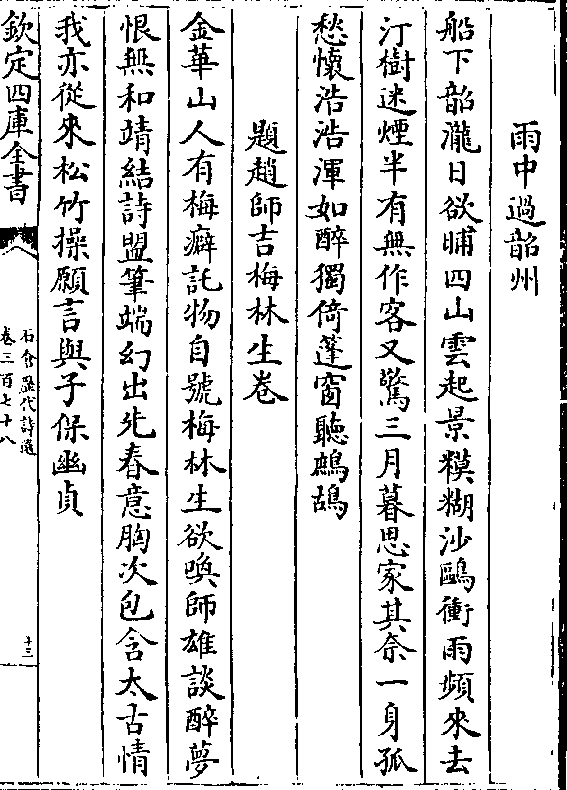 雨中過韶州
船下韶瀧日欲晡四山雲起景糢糊沙鷗衝雨頻來去
汀樹迷煙半有無作客又驚三月暮思家其奈一身孤
愁懷浩浩渾如醉獨倚蓬窗聽鷓鴣
題趙師吉梅林生卷
金華山人有梅癖託物自號梅林生欲喚師雄談醉夢
恨無和靖結詩盟筆端幻出先春意胸次包含太古情
我亦從來松竹操願言與子保幽貞
欽定四庫全書
石倉歷代詩選
卷三百七十八
十三